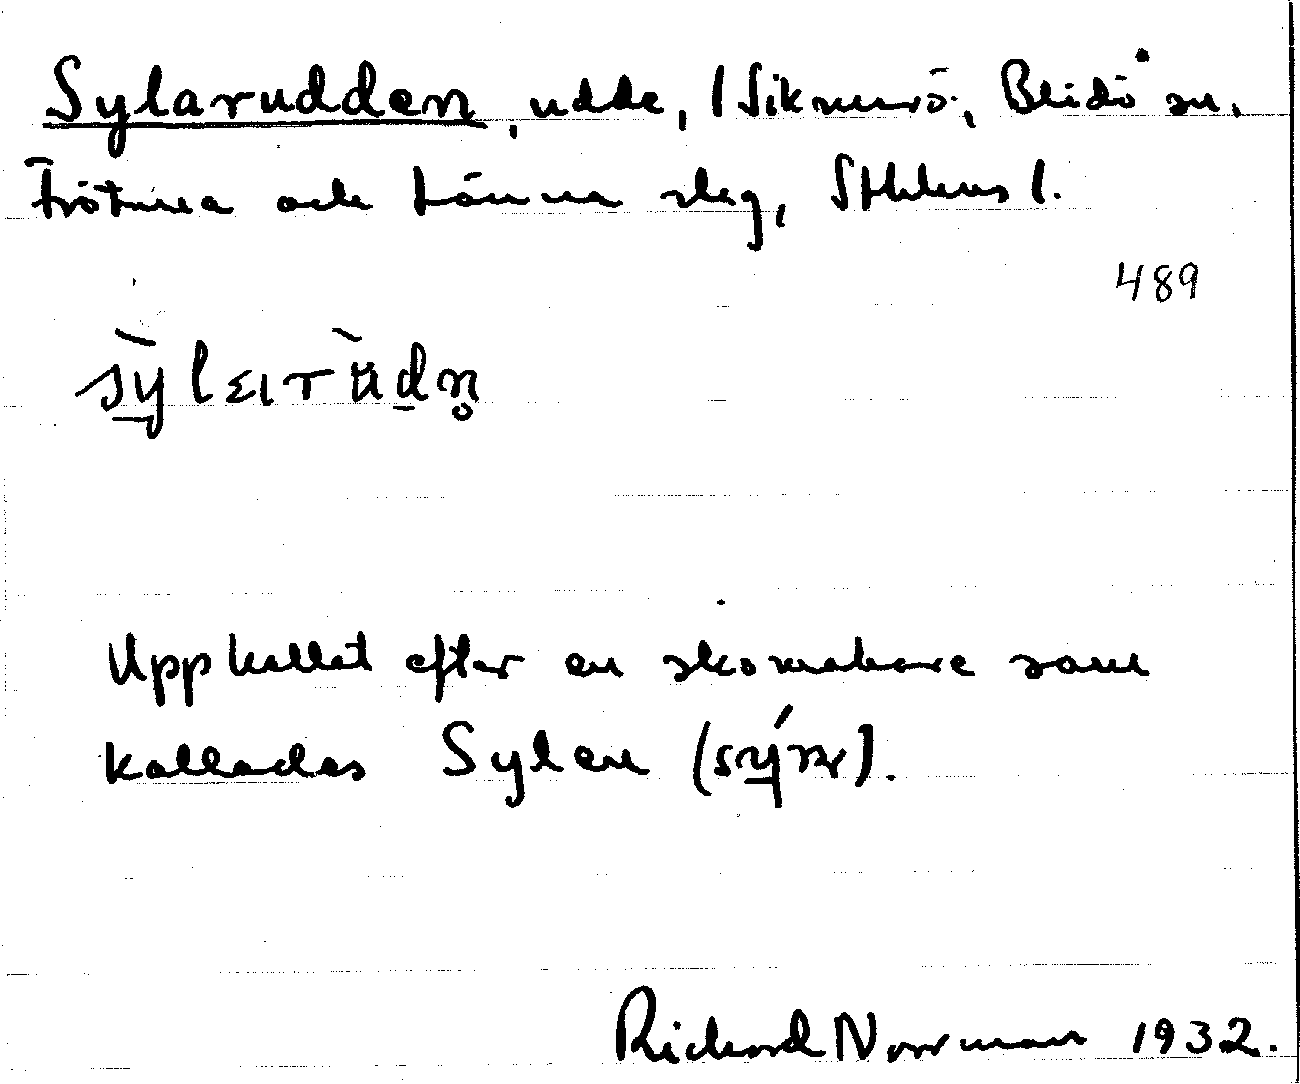 Sylarudden, udde, I Siknäsö, Blidö sn,
Frötuna och Länna slg, Sthlms l.
489
Uppkallat efter en skomakare som
kallades Sylen
Richard Norrman 1932.